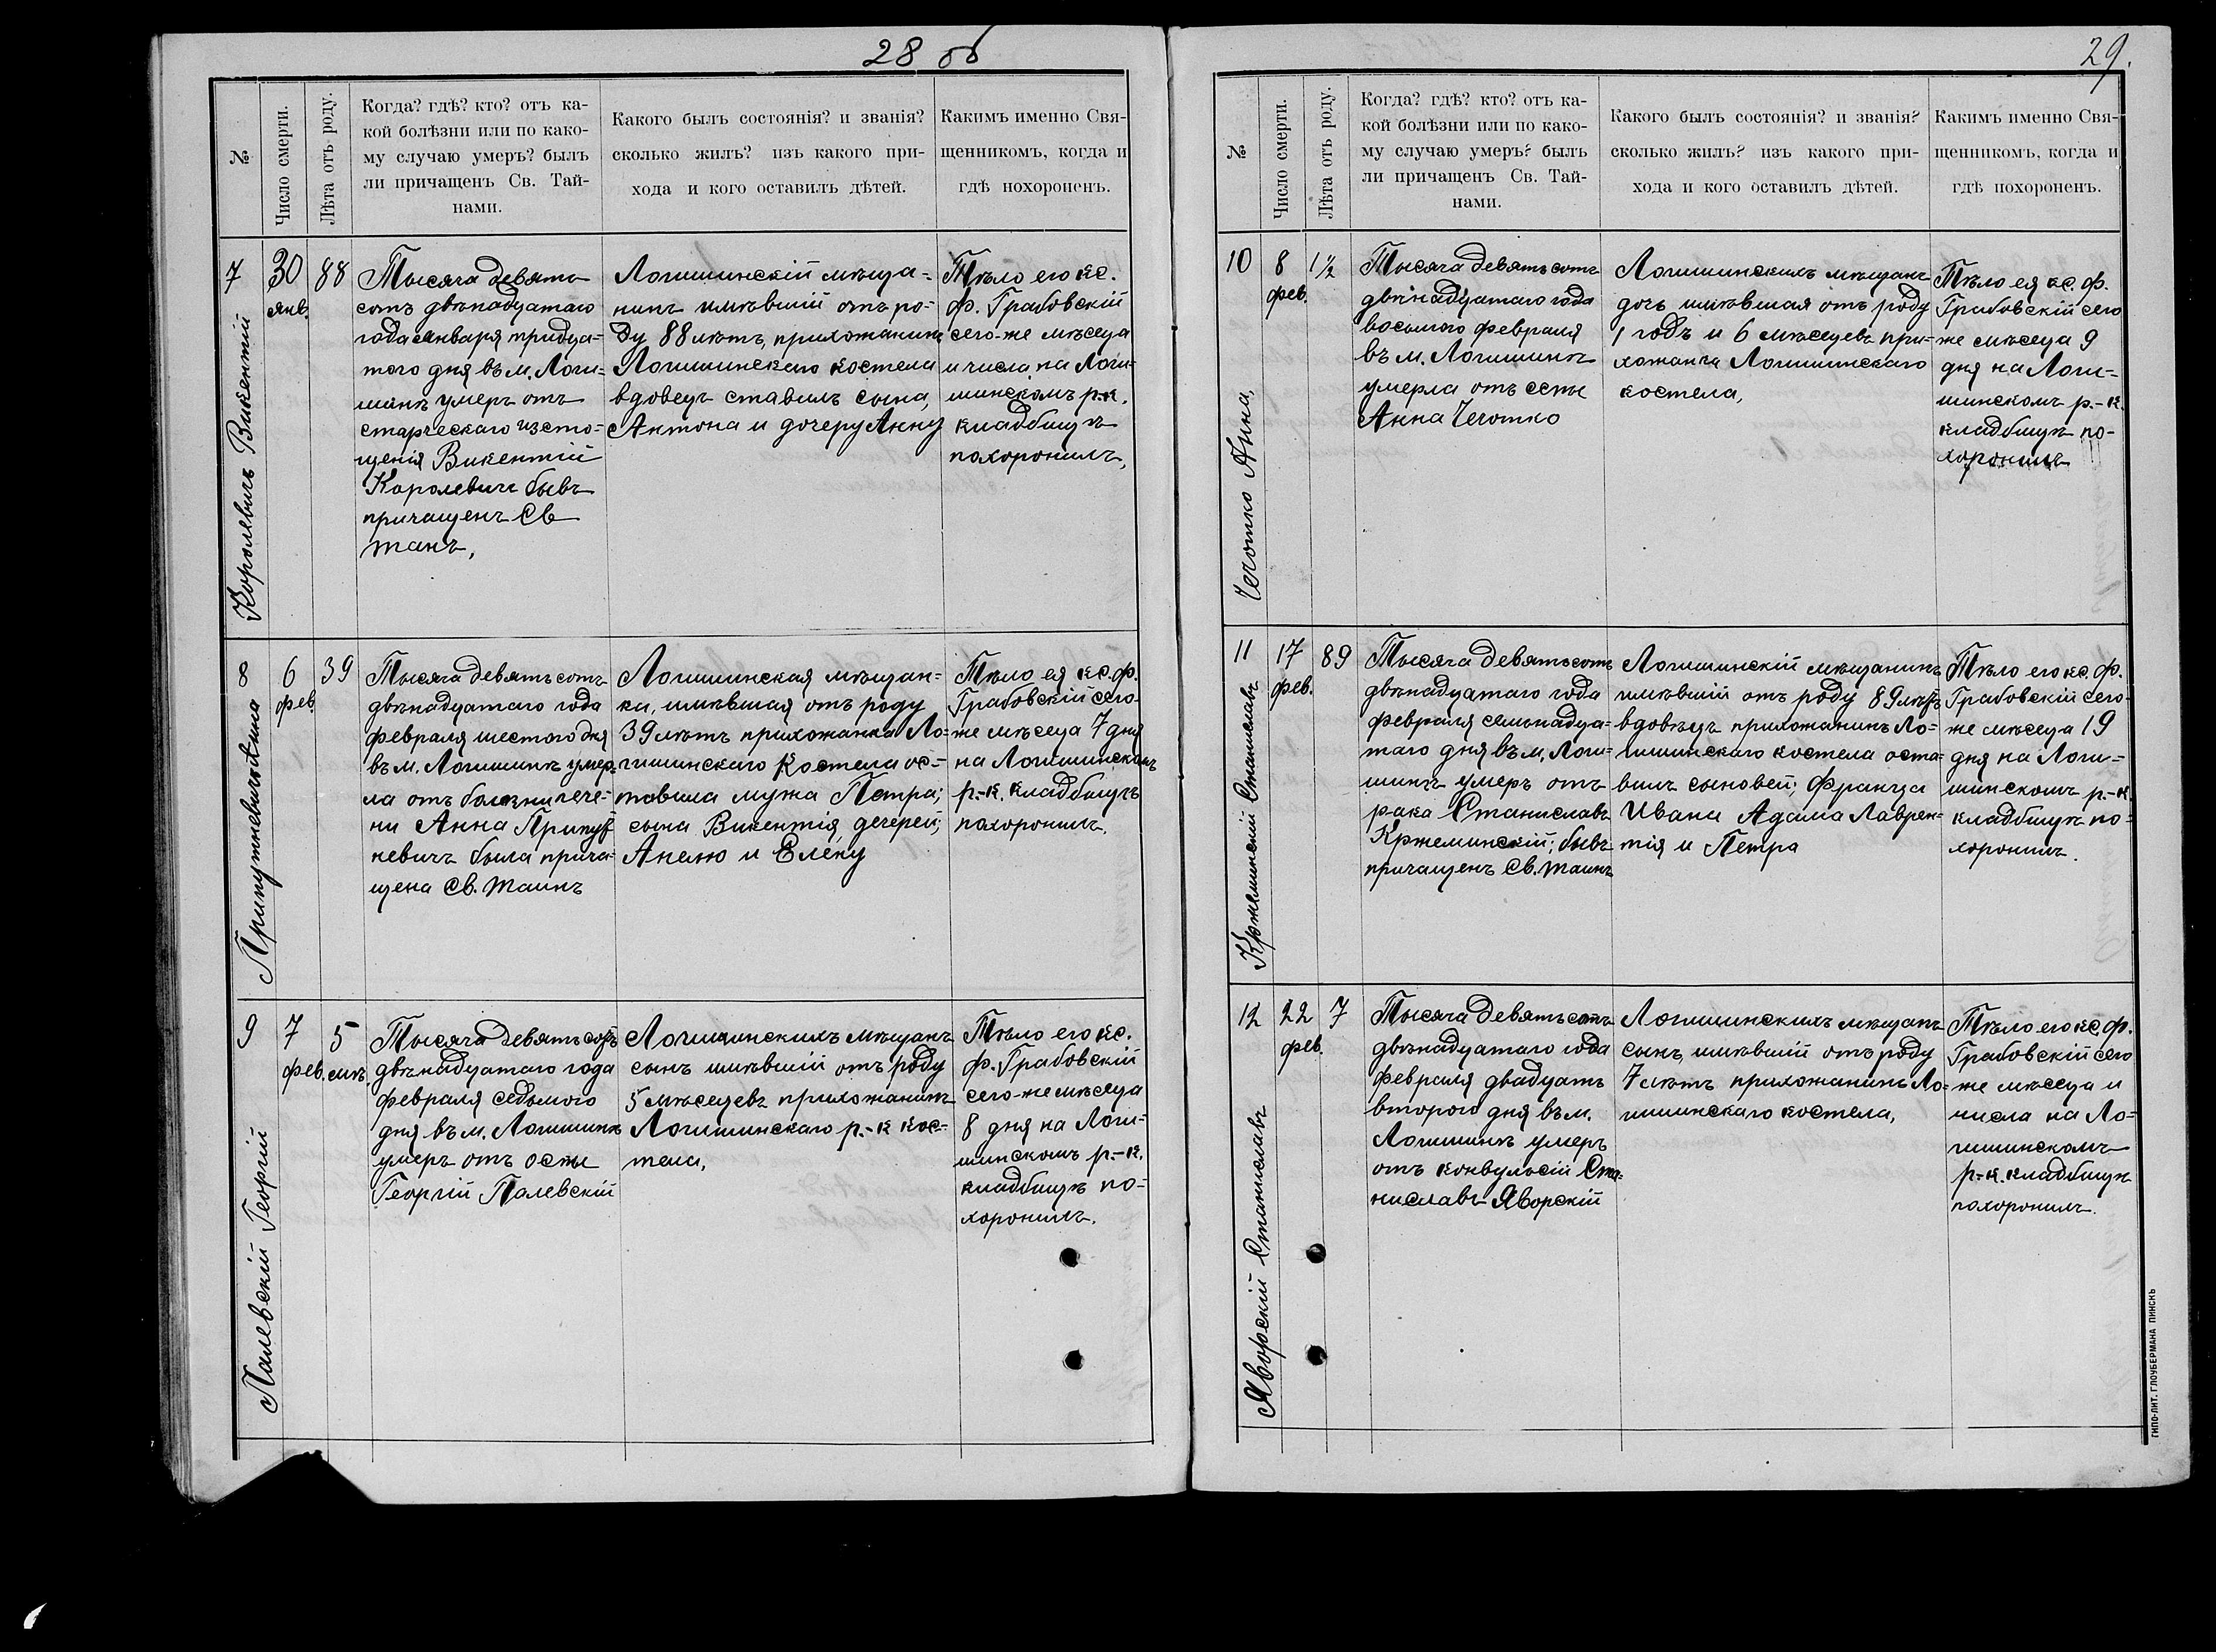 28 об
№
Число смерти.
Лѣта отъ роду.
Когда? гдѣ? кто? отъ ка-
кой болѣзни или по како-
му случаю умеръ? былъ
ли причащенъ Св. Тай-
нами.
Какого былъ состоянія? и званія?
сколько жилъ? изъ какого при-
хода и кого оставилъ дѣтей.
Какимъ именно Свя-
щенникомъ, когда и
гдѣ похороненъ.
7
Королевичъ Викентій
30
янв.
88
Тысяча девять
сотъ двѣнадцатаго
года января тридца-
того дня въ м. Логи-
шинѣ умеръ отъ
старческаго исто-
щенія Викентій
Королевичъ бывъ
причащенъ Св
таинъ,
Логишинскій мѣща-
нинъ имѣвшій отъ ро-
ду 88 лѣтъ, прихожанинъ
Логишинскаго костела
вдовецъ ставилъ сына,
Антона и дочеру Анну
Тѣло его кс.
ф. Грабовскій
сего-же мѣсеца
и числа на Логи-
шинскомъ р.-к.
кладбищѣ
похоронилъ,
8
Припутневичъ Анна
6
фев.
39
Тысяча девятьсотъ
двѣнадцатаго года
февраля шестого дня
въ м. Логишинѣ умер-
ла отъ болезни пече-
ни Анна Припут
невичъ была прича-
щена Св. Таинъ
Логишинская мѣщан-
ка, имѣвшая отъ роду
39 лѣтъ прихожанка Ло-
гишинскаго костела ос-
тавила мужа Петра;
сына Викентія, дечереи;
Анелю и Елену
Тѣло ея кс. ф.
Грабовскій сего-
же мѣсеца 7 дня
на Логишинскомъ
р.-к. кладбищѣ
похоронилъ.
9
Палевскій Георгій
7
фев.
5
мѣ.
Тысяча девятьсотъ
двѣнадцатаго года
февраля седьмого
дня въ м. Логишинѣ
умеръ отъ оспы
Георгій Палевскій
Логишинскихъ мѣщанъ
сынъ имѣвшій отъ роду
5 мѣсецевъ прихожанинъ
Логишинскаго р.-к кос-
тела,
Тѣло его кс.
ф. Грабовскій
сего-же мѣсеца
8 дня на Логи-
шинскомъ р.-к.
кладбищѣ по-
хоронилъ.
29.
№
Число смерти.
Лѣта отъ роду.
Когда? гдѣ? кто? отъ ка-
кой болѣзни или по како-
му случаю умеръ? былъ
ли причащенъ Св. Тай-
нами.
Какого былъ состоянія? и званія?
сколько жилъ? изъ какого при-
хода и кого оставилъ дѣтей.
Какимъ именно Свя-
щенникомъ, когда и
гдѣ похороненъ.
10
Чечотко Анна,
8
фев.
1 1/2
Тысяча девятьсотъ
двѣнадцатаго года
восьмого февраля
въ м. Логишинѣ
умерла отъ оспы
Анна Чечотко
Логишинскихъ мѣщанъ
дочъ имѣвшая отъ роду
1 годъ и 6 мѣсецевъ при-
хожанка Логишинскаго
костела,
Тѣло ея кс. ф.
Грабовскій сего
же мѣсеца 9
дня на Логи-
шинскомъ р.-к.
кладбищѣ по-
хоронилъ
11
Кржеминскій Станиславъ
17
фев.
89
Тысяча девятьсотъ
двѣнадцатаго года
февраля семьнадца-
таго дня въ м. Логи-
шинѣ умеръ отъ
рака Станиславъ
Кржеминскій; бывъ
причащенъ Св. таинъ
Логишинскій мѣщанинъ
имѣвшій отъ роду 89 лѣтъ
вдовѣцъ прихожанинъ Ло-
гишинскаго костела оста-
вилъ сыновей; Франца
Ивана Адама Лаврен-
тія и Петра
Тѣло его кс. ф.
Грабовскій сего-
же мѣсеца 19
дня на Логи-
шинскомъ р.-к.
кладбищѣ по-
хоронилъ.
12
Яворскій Станиславъ
22
фев.
7
Тысяча девятьсотъ
двѣнадцатаго года
февраля двадцать
второго дня въ м.
Логишинѣ умеръ
отъ конвульсій Ста-
ниславъ Яворскій
Логишинскихъ мѣщанъ
сынъ имѣвшій отъ роду
7 лѣтъ прихожанинъ Ло-
гишинскаго костела,
Тѣло его кс. ф.
Грабовскій сего
же мѣсеца и
числа на Ло-
гишинскомъ
р.-к. кладбищѣ
похоронилъ.
ТИПО-ЛИТ. ГЛОУБЕРМАНА ПИНСКЪ